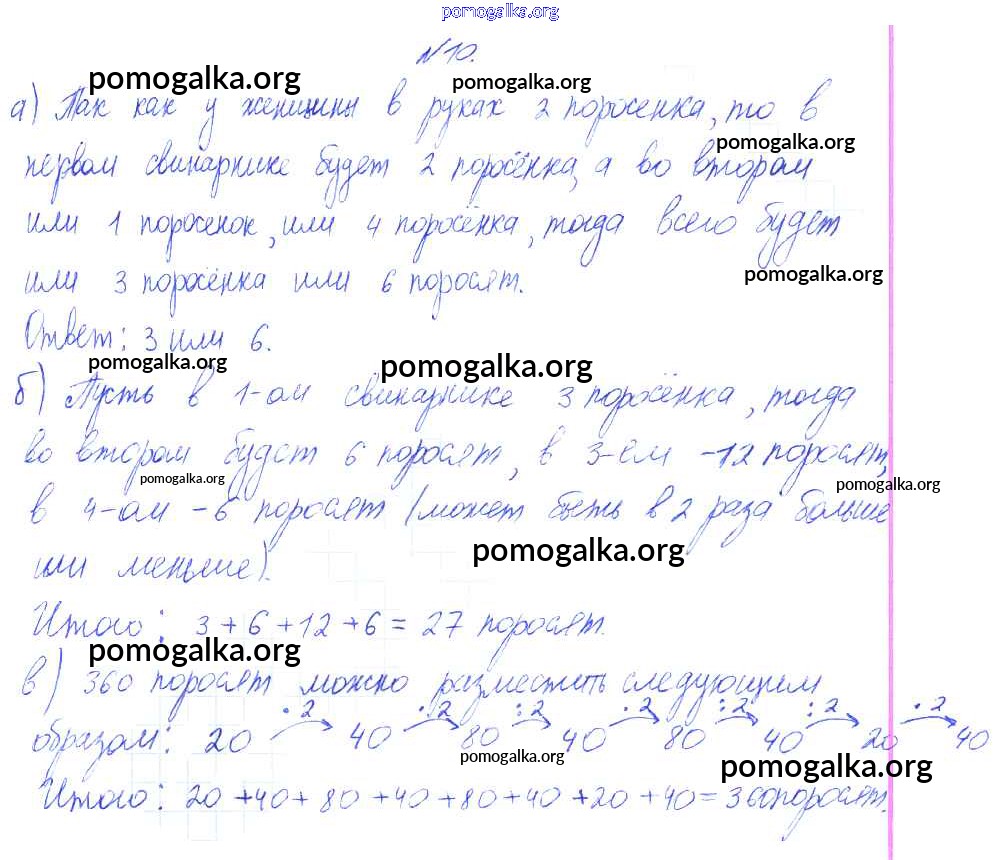 pomogalka.org
№10.
pomogalka.org pomogalka.org
а) Так как у женщины в руках 2 поросенка, то в
pomogalka.org
первом свинарнике будет 2 поросёнка, а во втором
или 1 поросенок, или 4 поросёнка, тогда всего будет
pomogalka.org
или 3 поросёнка или 6 поросят.
Ответ: 3 или 6.
pomogalka.org pomogalka.org
б) Пусть в 1-ом свинарнике 3 поросёнка, тогда
во втором будет 6 поросят, в 3-ем -12 поросят,
pomogalka.org pomogalka.org
в 4-ом -6 поросят (может быть в 2 раза больше
pomogalka.org
или меньше).
Итого: 3+6+12+6=27 поросят.
pomogalka.org
в) 360 поросят можно разместить следующим
·2 ·2 :2 ·2 :2 :2 ·2
образом: 20 40 80 40 80 40 20 40
pomogalka.org pomogalka.org
Итого: 20+40+80+40+80+40+20+40=360поросят.